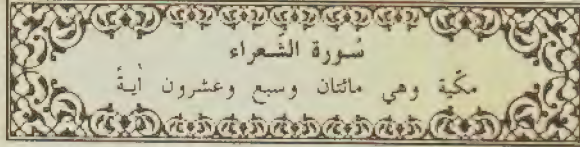 سورة الشعراء
مكّية وهي مائتان وسبع وعشرون أيةً